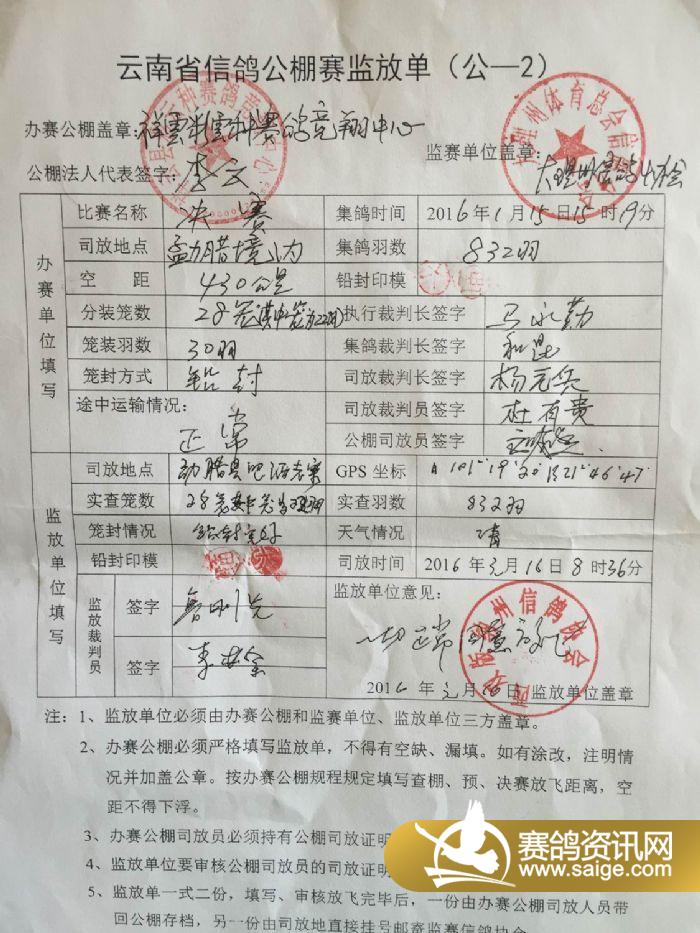 云南省信鸽公棚赛监放单（公—2）
办赛公棚盖章：祥云彩云种赛鸽竞翔中心
监赛单位盖章：
公棚法人代表签字：李云
办赛单位填写
比赛名称 决赛 集鸽时间 2016年1月15日15时19分
司放地点 勐腊境内 集鸽羽数 832羽
空 距 430公里 铅封印模
分装笼数 28笼 执行裁判长签字 马永勤
笼装羽数 30羽 集鸽裁判长签字 和昆
笼封方式 铅封 司放裁判长签字
途中运输情况：正常 司放裁判员签字 杜有贵
公棚司放员签字
监放单位填写
司放地点 GPS 坐标
实查笼数 实查羽数 832羽
笼封情况 铅封完好 天气情况 晴
铅封印模 司放时间 2016年元月16日8时36分
监放裁判员
签字 监放单位意见：
一切正常 同意放飞
签字
2016年元月16日 监放单位盖章
注：1、监放单位必须由办赛公棚和监赛单位、监放单位三方盖章。
2、办赛公棚必须严格填写监放单，不得有空缺、漏填。如有涂改，注明情
况并加盖公章。按办赛公棚规程规定填写查棚、预、决赛放飞距离，空
距不得下浮。
3、办赛公棚司放员必须持有公棚司放证明
4、监放单位要审核公棚司放员的司放证明
5、监放单一式二份，填写、审核放飞完毕后，一份由办赛公棚司放人员带
回公棚存档，另一份由司放地直接挂号邮寄监赛信鸽协会
赛鸽资讯网
www.saige.com